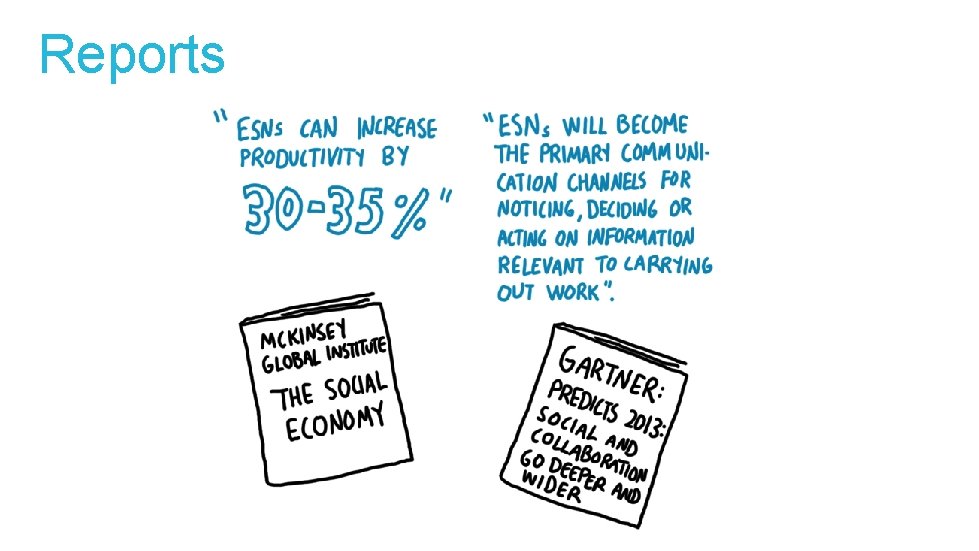 Reports
"ESNs CAN INCREASE
PRODUCTIVITY BY
30-35%"
"ESNs WILL BECOME
THE PRIMARY COMMUNI-
CATION CHANNELS FOR
NOTICING, DECIDING OR
ACTING ON INFORMATION
RELEVANT TO CARRYING
OUT WORK".
MCKINSEY
GLOBAL INSTITUTE
THE SOCIAL
ECONOMY
GARTNER:
PREDICTS 2013:
SOCIAL AND
COLLABORATION
GO DEEPER AND
WIDER